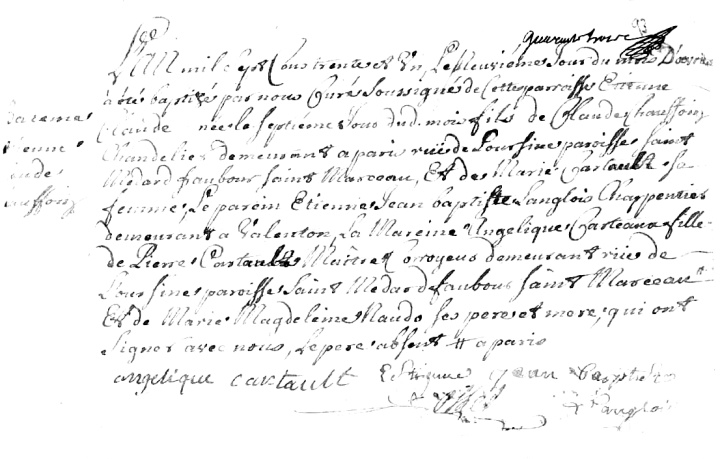 quarante trois
93
L'an mil sept Cens trente et Un, Le Neuviéme Jour du mois D'avril
a été baptisé par nous Curé Soussigné de Cette parroisse Etienne
Claude née le Septiéme Jour dud. mois fils de Claude Chauffoin
Chandelier demeurant a paris ruë de Loursine paroisse Saint
Médard faubour Saint Marceau, Et de Marie Cartault Sa
femme; Le parein Etienne Jean baptiste Langlois Charpentier
demeurant a Valenton, La Mareine Angelique Carteaux fille
de Pierre Cartault Maître Corroyeur demeurant ruë de
Loursine paroisse Saint Medard faubour Saint Marceau
Et de Marie Magdeleine Naudo Ses pere et mere, qui ont
Signer avec nous, Le pere absent # a paris
angelique cartault Estienne jean baptiste
Langlois